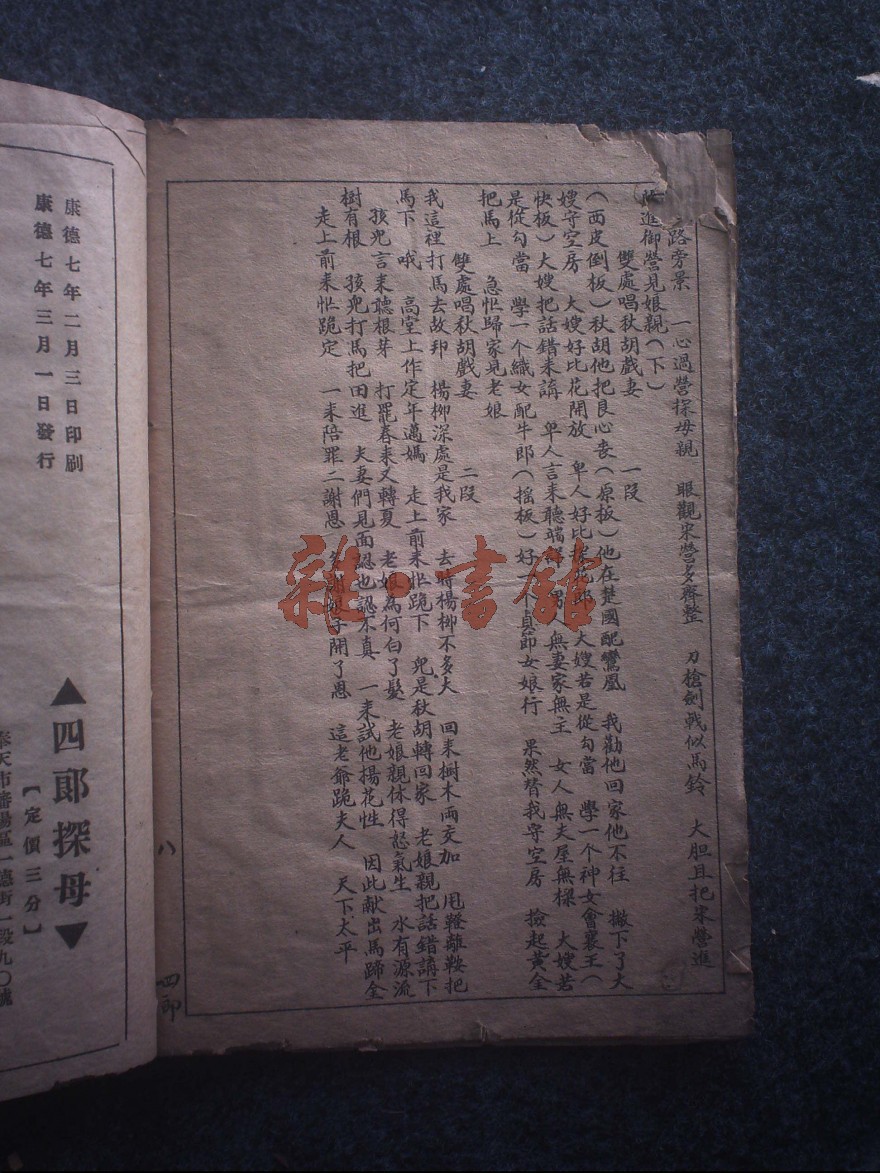 路旁景　一心過營探母親　眼觀宋營多齊整　刀槍劍戟似馬鈴　大胆且把宋營進
進御營見娘親（下）
雙處唱秋胡戲妻　一段
（西皮倒板）秋胡他把良心丧（原板）他在楚國配鸞凰　我勸他回家他不往　撇下了大
嫂守空房　大嫂好比花開放　卑人好比　大嫂若是從勾當　學一个神女會襄王（
快板）大嫂把話錯来講　卑人言来聽端詳　男人無妻家無主　女人無夫屋無樑　大嫂若
是從勾當　學一个織女配牛郎（搖板）好　个貞節女娘行　果然替我守空房　撿起黄金
把馬上　急忙歸家見老娘
雙處唱秋胡戲妻　二段
我這裡打馬去故邦　楊柳深處是我家　去時楊柳不多大　回来樹木両交加　甩鐙離鞍把
馬下　哦　高堂上作定年邁媽　走上前来忙跪下　兒是秋胡轉回家　老娘親把話錯講下
孩兒言来聽根芽　打罷春来又轉夏　老娘為何白了髮　老娘親休得怒氣生　水有源流
樹有根　孩兒打馬把田進　夫妻們見面認也認不真　一来試他揚花性　因此献出馬蹄金
走上前来忙跪定　一来陪罪二謝恩　多謝娘子開了恩　這老爺跪夫人　天下太平
八
四郎
康德七年二月三日印刷
康德七年三月一日發行
▲四郎探母▼
〔定價三分〕
奉天市瀋陽區一德街一段九〇號
雜·書館